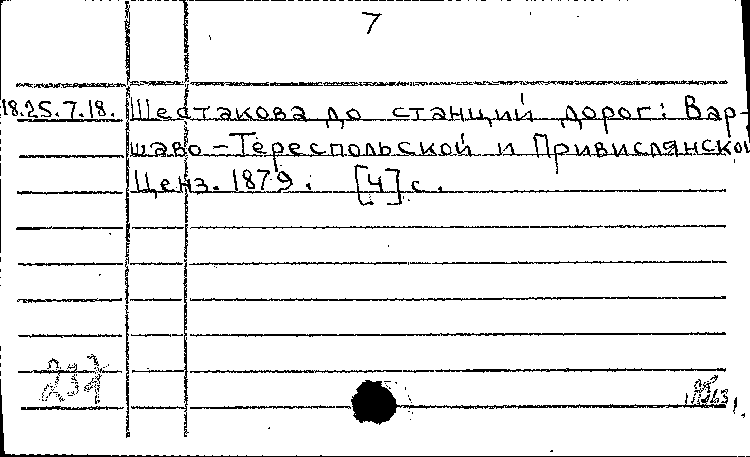 7
18.25.7.18. Шестакова до станций дорог: Вар-
шаво-Тереспольской и Привислянской
Ценз. 1879. [4] с.
237